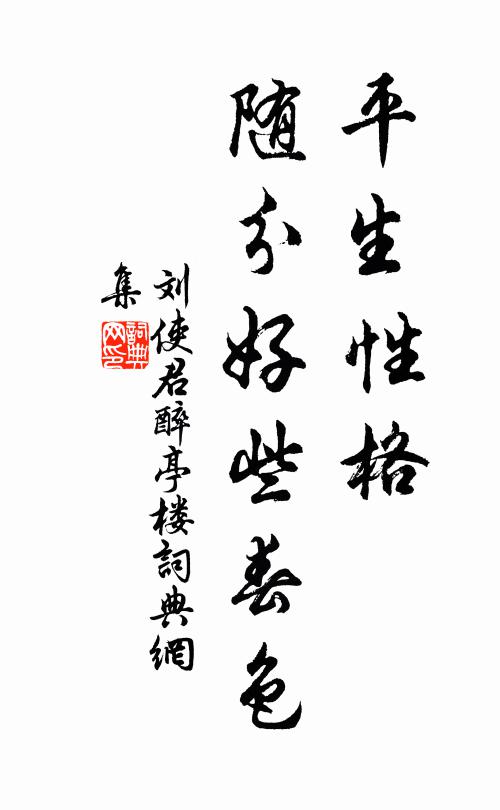 平生性格
随分好些春色
刘使君醉亭楼詞典網
集
詞典网印